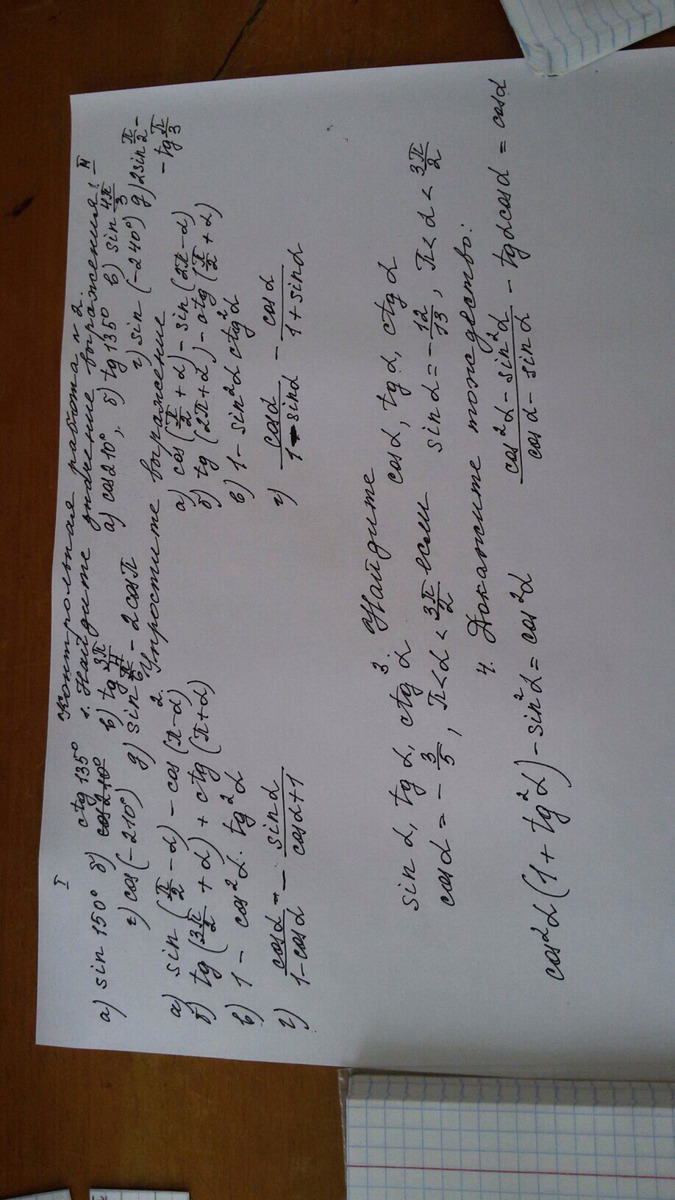 Контрольная работа № 2.
1. Найдите значение выражения:
I
а) sin 150° б) ctg 135° в) tg 3π/4
г) cos(-210°) д) sin π/6 - 2cos π
II
а) cos 210°, б) tg 135° в) sin 4π/3
г) sin (-240°) д) 2sin π/2 - tg π/3
2. Упростите выражение
а) sin(π/2 - α) - cos(π - α)
б) tg(3π/2 + α) + ctg(π + α)
в) 1 - cos²α · tg²α
г) cosα/(1 - cosα) - sinα/(cosα + 1)
а) cos(π/2 + α) - sin(2π - α)
б) tg(2π + α) - ctg(π/2 + α)
в) 1 - sin²α ctg²α
г) cosα/(1 - sinα) - cosα/(1 + sinα)
3. Найдите
sin α, tg α, ctg α
cos α = - 3/5, π < α < 3π/2
если
cos α, tg α, ctg α
sin α = - 12/13, π < α < 3π/2
4. Докажите тождество:
cos²α(1 + tg²α) - sin²α = cos²α
(cos²α - sin²α)/(cosα - sinα) - tgα cosα = cosα